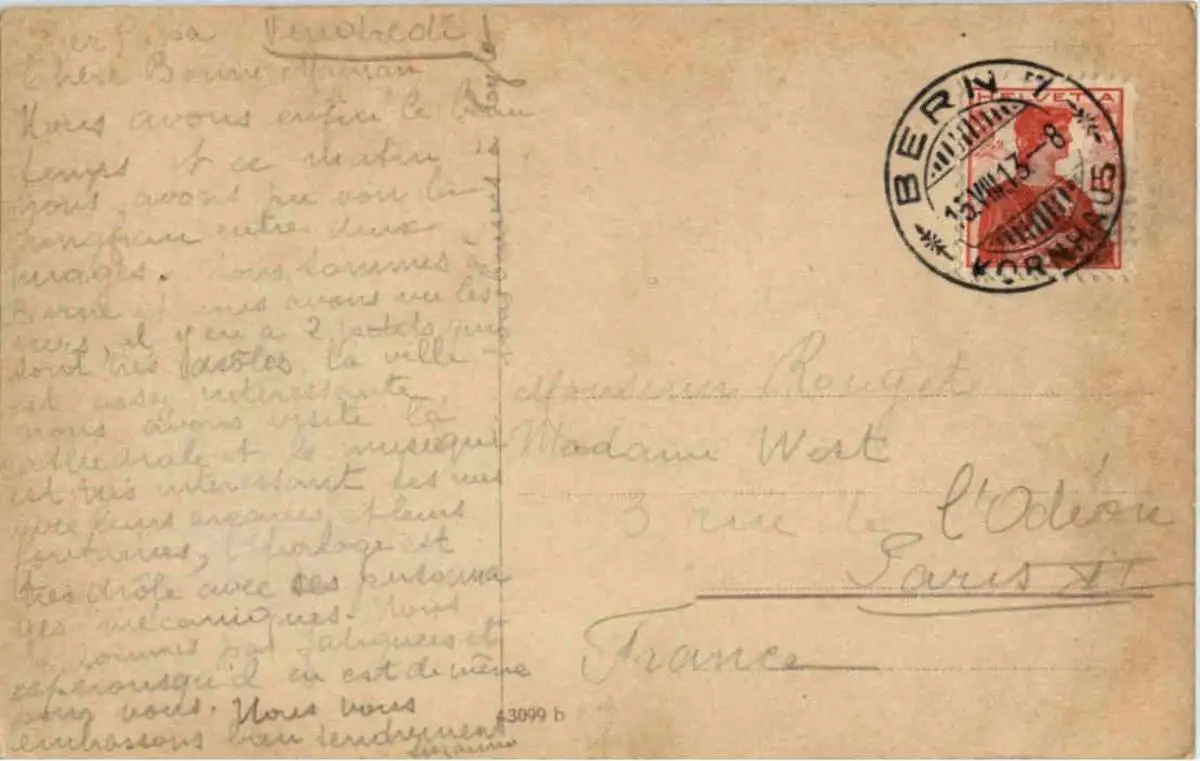 Vendredi
Chère Bonne Maman
Nous avons enfin le beau
temps et ce matin
nous avons pu voir la
Jungfrau entre deux
nuages. Nous sommes à
Berne et nous avons vu les
ours il y en a 2 petits qui
sont très drôles. la ville
est assez intéressante
nous avons visité la
cathédrale et le
est très intéressant les rues
avec leurs arcades, et leurs
fontaines, l'horloge est
très drôle avec ses personna
ges mécaniques. Nous
sommes pas fatiguées et
esperons qu'il en est de même
pour vous. Nous vous
embrassons bien tendrement
Suzanne
BERN 7
HELVETIA
15.VIII.13.-8
KORNHAUS
Monsieur Rouget
Madame West
3 rue de l'Odéon
Paris
France
43099 b